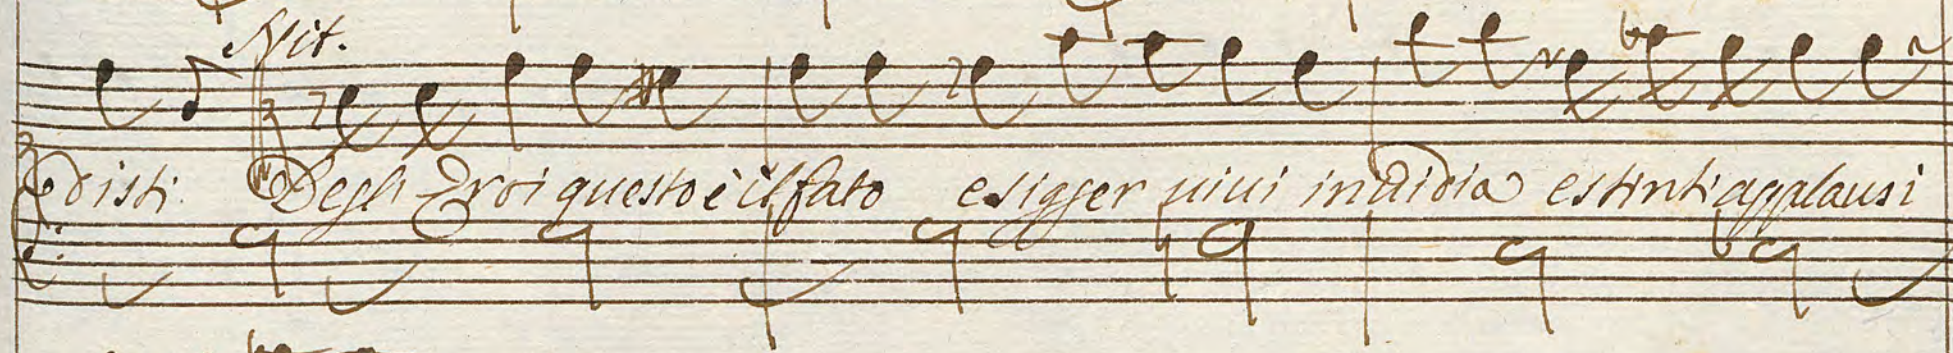 Nit.
disti. Degli Eroi questo è il fato esigger uiui inuidia estinti applausi